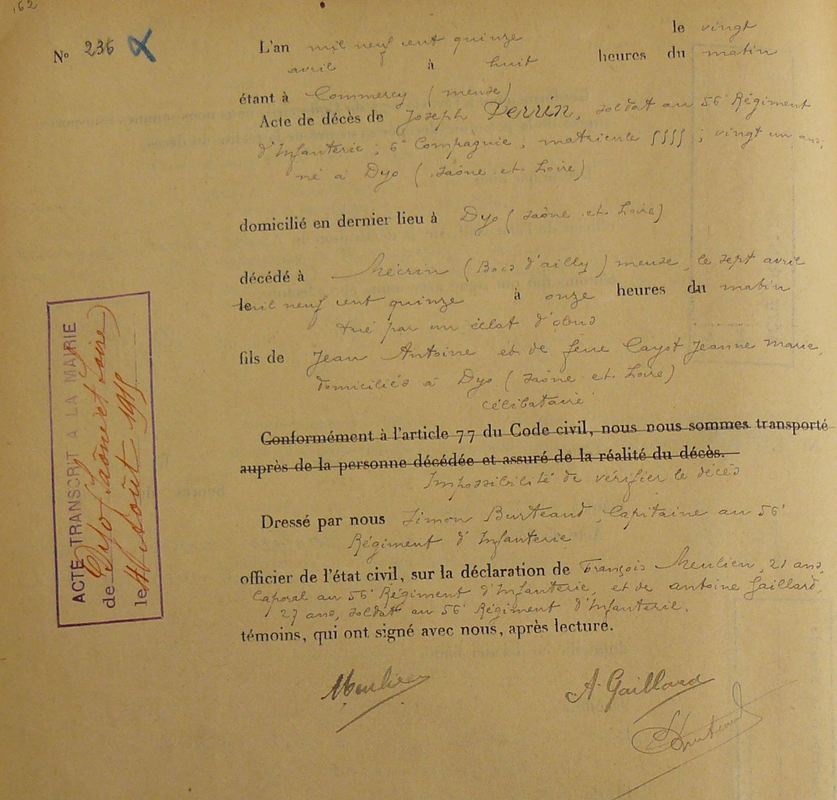 162
N° 236
L'an mil neuf cent quinze le vingt
avril à huit heures du matin
étant à Commercy (meuse)
Acte de décès de Joseph Perrin, soldat au 56e Régiment
d'Infanterie, 6e Compagnie, matricule 5555 ; vingt un ans,
né à Dyo (Saône et Loire)
domicilié en dernier lieu à Dyo (Saône et Loire)
décédé à Mécrin (Bois d'ailly) meuse, le sept avril
le mil neuf cent quinze à onze heures du matin
tué par un éclat d'obus
fils de Jean Antoine et de feue Cayot Jeanne Marie,
domiciliés à Dyo (Saône et Loire)
célibataire
Conformément à l'article 77 du Code civil, nous nous sommes transporté
auprès de la personne décédée et assuré de la réalité du décès.
Impossibilité de vérifier le décès
Dressé par nous Simon Burteaud, Capitaine au 56e
Régiment d'Infanterie
officier de l'état civil, sur la déclaration de François Meulien, 21 ans,
Caporal au 56e Régiment d'Infanterie, et de antoine Gaillard,
27 ans, soldat au 56e Régiment d'Infanterie.
témoins, qui ont signé avec nous, après lecture.
Meulien
A. Gaillard
Burteaud
ACTE TRANSCRIT A LA MAIRIE
de Dyo (Saône et Loire)
le Août 1915